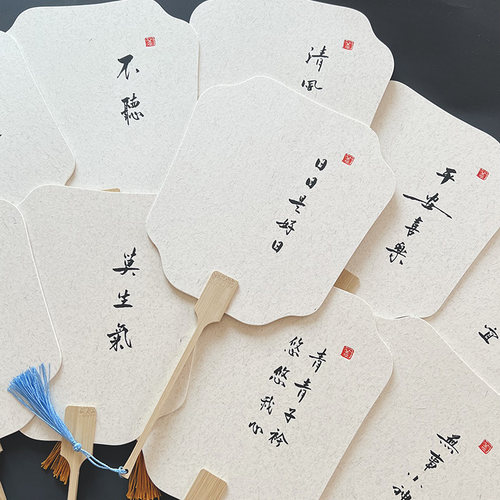 不聽
清風
日日是好日
平安喜樂
莫生氣
青青子衿
悠悠我心
宜
無事小神